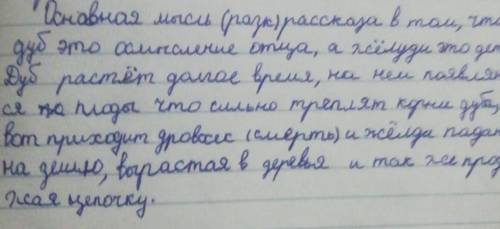 Основная мысль (разк) рассказа в том, что
дуб это осмысление отца, а жёлуди это дет
Дуб растёт долгое время, на нем появля
ся плоды что сильно треплят корни дуба,
вот приходит дровосек (смерть) и жёлди падают
на землю, вырастая в деревья и так же прод
жая цепочку.